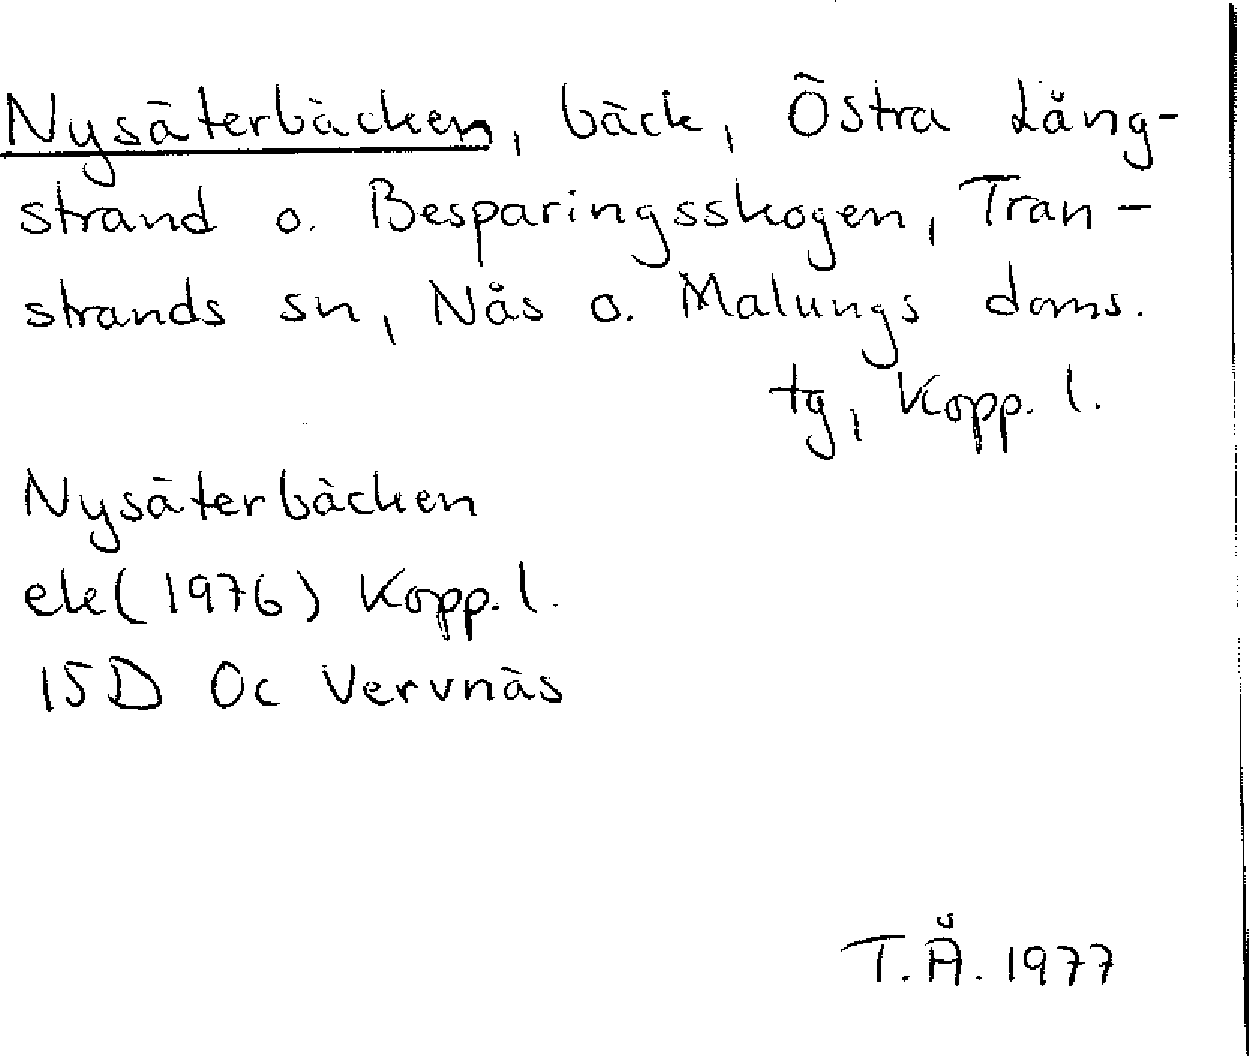 Nysäterbäcken, bäck, Östra Lång-
strand o. Besparingsskogen, Tran-
strands sn, Nås o. Malungs doms.
tg, Kopp. l.
Nysäterbäcken
ek (1976) Kopp. l.
15D 0c Vervnäs
T.Å. 1977